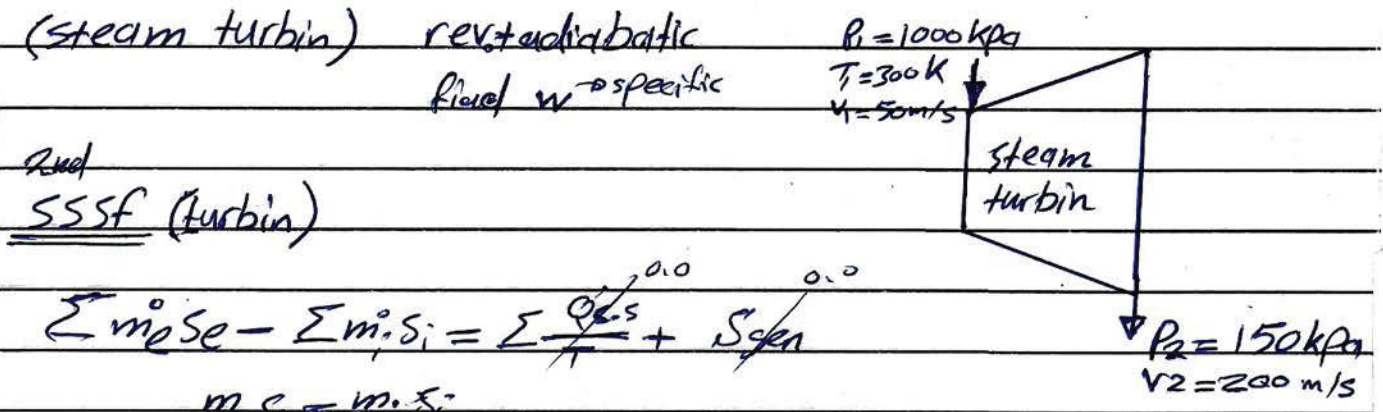 (steam turbin) rev.+adiabatic
find w → specific
P₁=1000kpa
T₁=300K
V₁=50m/s
steam
turbin
2nd
SSSf (turbin)
0.0 0.0
Σṁₑsₑ - Σṁᵢsᵢ = Σ Q̇c.s/T + Sgen
P₂=150kpa
V2=200 m/s